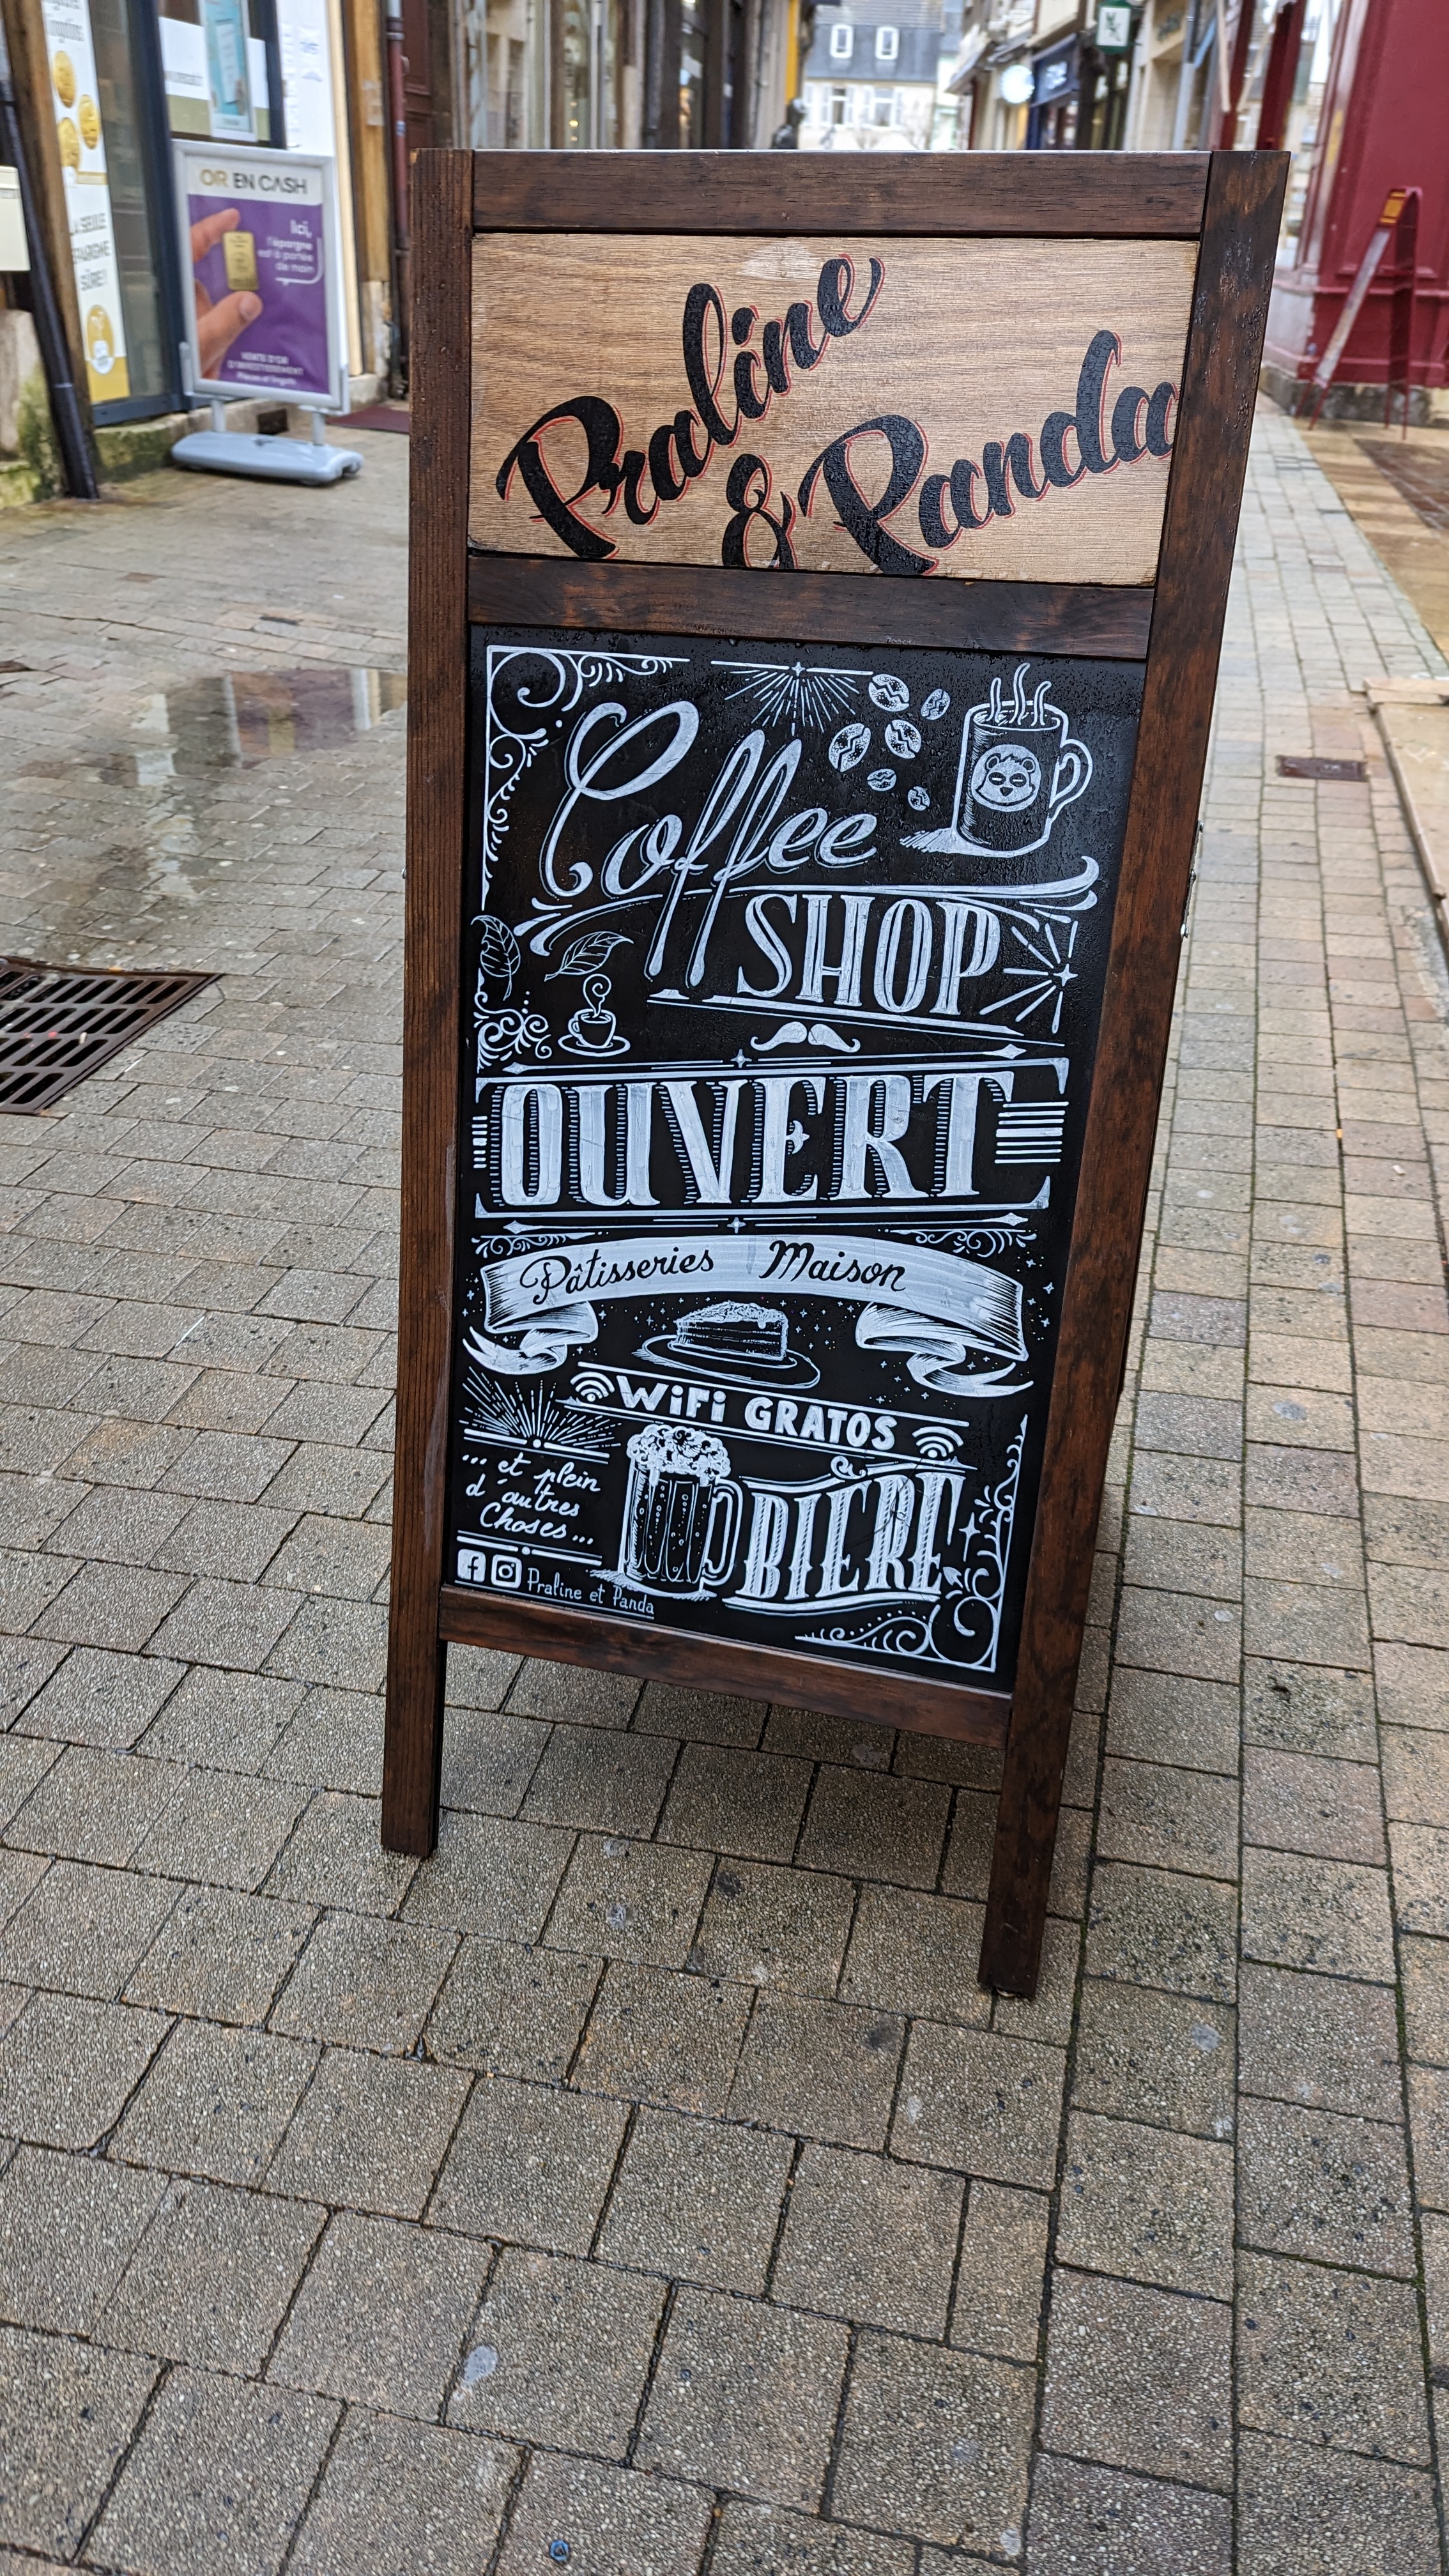 OR EN CASH
Ici,
l'épargne
est à portée
de main
VENTE D'OR
D'INVESTISSEMENT
Praline
& Panda
Coffee
SHOP
OUVERT
Pâtisseries Maison
WiFi GRATOS
... et plein
d'autres
Choses...
BIÈRE
Praline et Panda